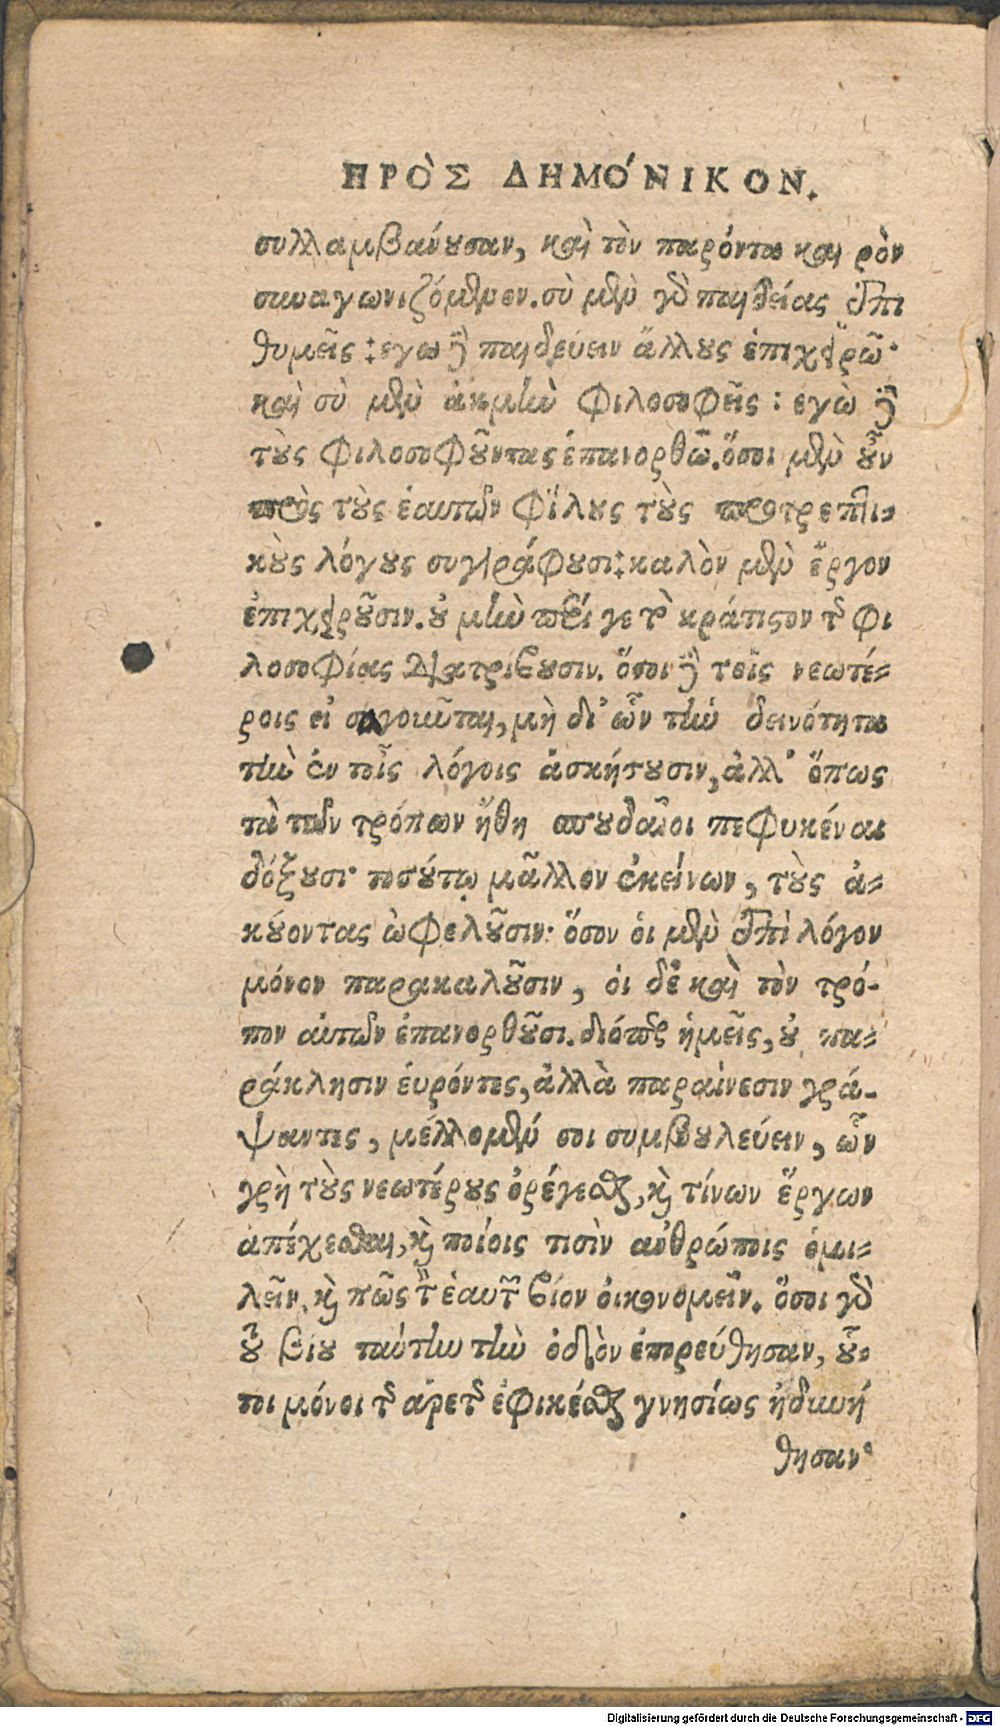 ΠΡῸΣ ΔΗΜΌΝΙΚΟΝ.
συλλαμβάνουσαν, καὶ τὸν παρόντα καιρὸν
συναγωνιζόμενον. σὺ μὲν γὰρ παιδείας ἐπι
θυμεῖς: εγω δὲ παιδεύειν ἄλλους ἐπιχειρῶ·
καὶ σὺ μὲν ἀκμὴν φιλοσοφεῖς: εγὼ δὲ
τοὺς φιλοσοφοῦντας ἐπανορθῶ. ὅσοι μὲν οὖν
πρὸς τοὺς ἑαυτῶν φίλους τοὺς προτρεπτι-
κοὺς λόγους συγγράφουσι: καλὸν μὲν ἔργον
ἐπιχειροῦσιν. οὐ μὴν περί γε τὸ κράτιστον τῆς φι
λοσοφίας διατρίβουσιν. ὅσοι δὲ τοῖς νεωτέ-
ροις εἰσηγοῦνται, μὴ δι' ὧν τὴν δεινότητα
τὴν ἐν τοῖς λόγοις ἀσκήσουσιν, ἀλλ' ὅπως
τὰ τῶν τρόπων ἤθη σπουδαῖοι πεφυκέναι
δόξουσι· τοσούτῳ μᾶλλον ἐκείνων, τοὺς ἀ-
κούοντας ὠφελοῦσιν: ὅσον οἱ μὲν ἐπὶ λόγον
μόνον παρακαλοῦσιν, οἱ δὲ καὶ τὸν τρό-
πον αὐτῶν ἐπανορθοῦσι. διόπερ ἡμεῖς, οὐ πα-
ράκλησιν εὑρόντες, ἀλλὰ παραίνεσιν γρά-
ψαντες, μέλλομέν σοι συμβουλεύειν, ὧν
χρὴ τοὺς νεωτέρους ὀρέγεσθαι, καὶ τίνων ἔργων
ἀπέχεσθαι, καὶ ποίοις τισὶν ἀνθρώποις ὁμι-
λεῖν, καὶ πῶς τὸν ἑαυτῶν βίον οἰκονομεῖν. ὅσοι γὰρ
τοῦ βίου ταύτην τὴν ὁδὸν ἐπορεύθησαν, οὗ-
τοι μόνοι τῆς ἀρετῆς ἐφικέσθαι γνησίως ἠδυνή
θησαν·
Digitalisierung gefördert durch die Deutsche Forschungsgemeinschaft - DFG